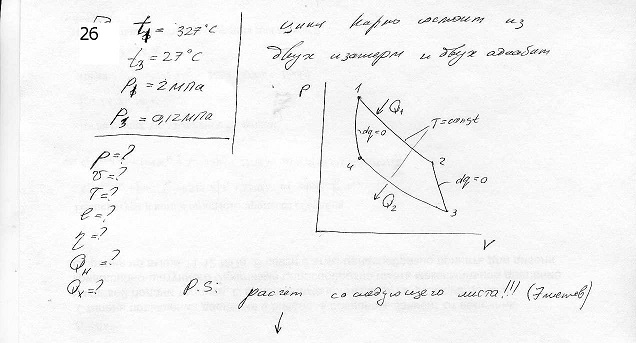 26
t₁ = 327°C
t₃ = 27°C
P₁ = 2 мпа
P₃ = 0,12 мпа
P = ?
v = ?
T = ?
l = ?
η = ?
Qн = ?
Qх = ?
цикл Карно состоит из
двух изотерм и двух адиабат
P
1
Q₁
T = const
dq = 0
4
2
dq = 0
Q₂
3
V
P.S: расчет со следующего листа!!! (7 листов)